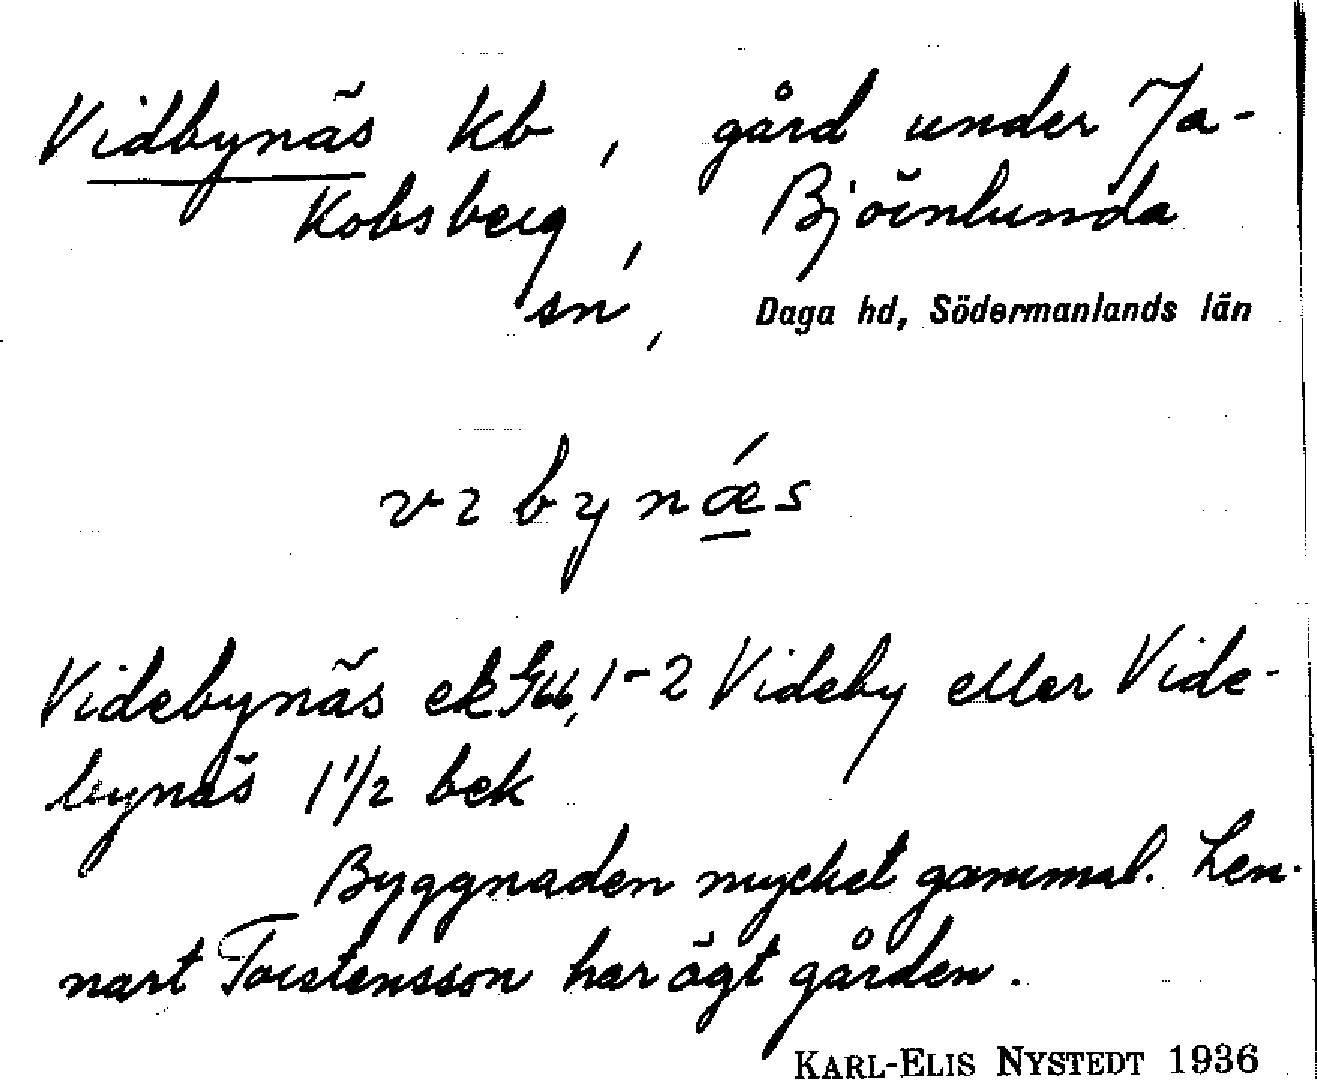 Vidbynäs kb, gård under Ja-
kobsberg, Björnlunda
sn, Daga hd, Södermanlands län
vɩbynǽs
Videbynäs ek Gbb, 1-2 Videby eller Vide-
bynäs 1 1/2 bek
Byggnaden mycket gammal. Len-
nart Torstensson har ägt gården.
KARL-ELIS NYSTEDT 1936